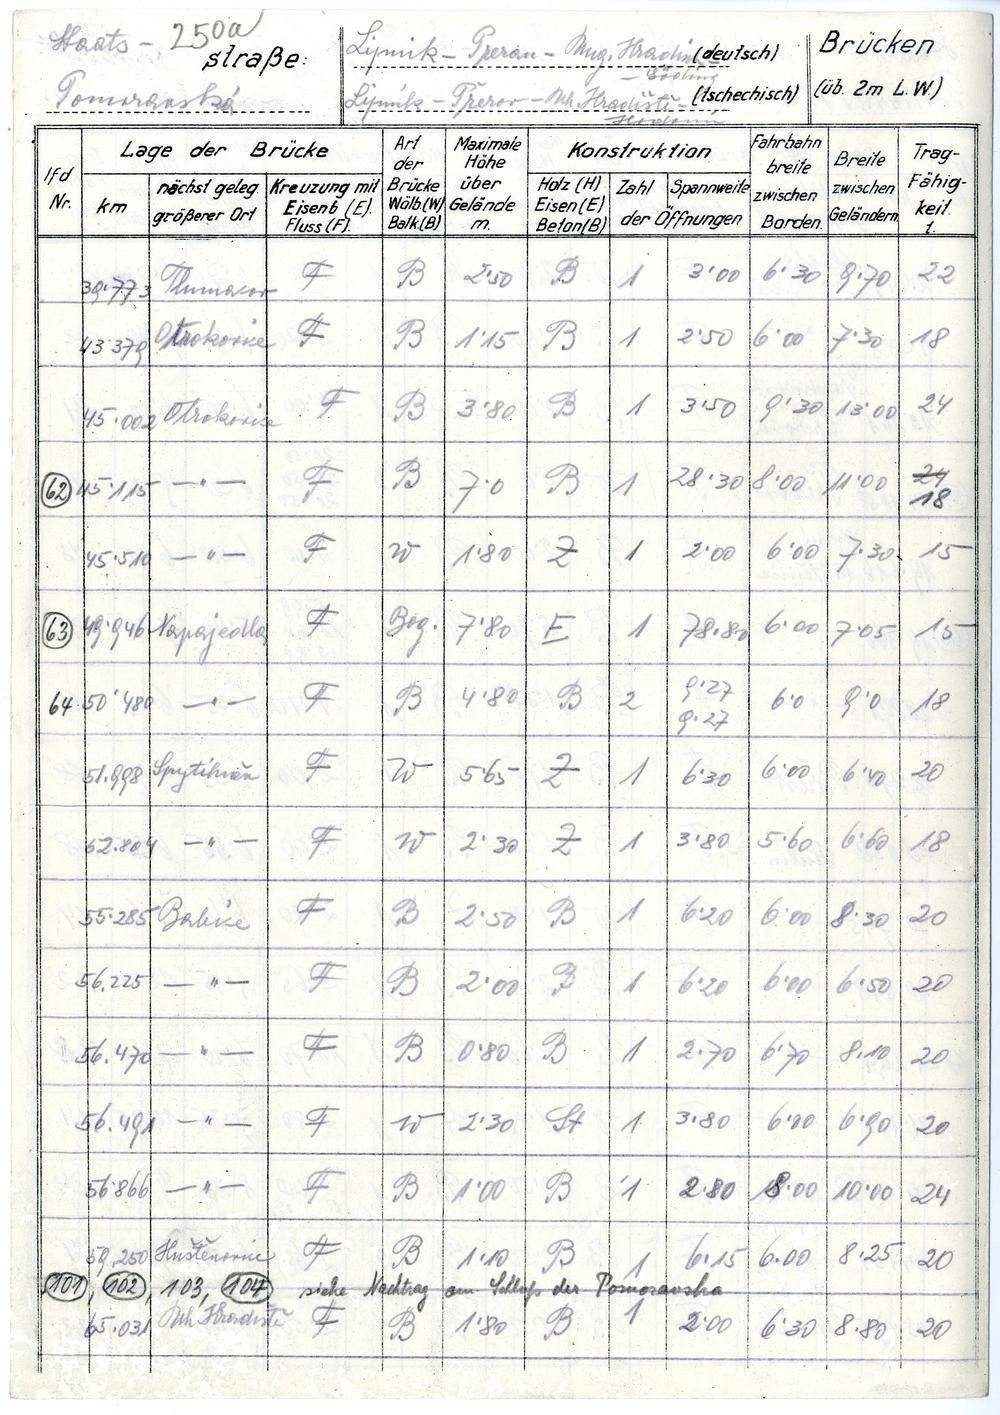 Staats- 250a straße:
Pomoravská
Lipnik - Prerau - Ung. Hradisch (deutsch)
- Göding
Lipník - Přerov - Uh. Hradiště - (tschechisch)
Hodonín
Brücken
(üb. 2m L.W.)
lfd Nr. | Lage der Brücke | Art der Brücke Wölb.(W) Balk.(B) | Maximale Höhe über Gelände m. | Konstruktion | Fahrbahn breite zwischen Borden. | Breite zwischen Geländern | Trag-Fähig-keit t.
km | nächst geleg. größerer Ort | Kreuzung mit Eisenb.(E). Fluss (F). | Holz (H) Eisen (E) Beton (B) | Zahl | Spannweite der Öffnungen
39.773 Tlumačov F B 2.50 B 1 3.00 6.30 9.70 22
43.379 Otrokovice F B 1.15 B 1 2.50 6.00 7.30 18
45.002 Otrokovice F B 3.80 B 1 3.50 9.30 13.00 24
62 45.115 — " — F B 7.0 B 1 28.30 8.00 11.00 24
18
45.510 — " — F W 1.80 Z 1 2.00 6.00 7.30 15
63 49.946 Napajedla F Bog. 7.80 E 1 78.80 6.00 7.05 15
64 50.480 — " — F B 4.80 B 2 9.27 6.0 9.0 18
9.27
51.998 Spytihněv F W 5.65 Z 1 6.30 6.00 6.40 20
52.804 — " — F W 2.30 Z 1 3.80 5.60 6.60 18
55.285 Babice F B 2.50 B 1 6.20 6.00 8.30 20
56.225 — " — F B 2.00 B 1 6.20 6.00 6.50 20
56.470 — " — F B 0.80 B 1 2.70 6.70 8.10 20
56.491 — " — F W 2.30 St 1 3.80 6.00 6.90 20
56.866 — " — F B 1.00 B 1 2.80 8.00 10.00 24
59.250 Huštěnovice F B 1.10 B 1 6.15 6.00 8.25 20
101, 102, 103, 104 siehe Nachtrag am Schluß der Pomoravska
65.031 Uh. Hradiště F B 1.80 B 1 2.00 6.30 8.80 20